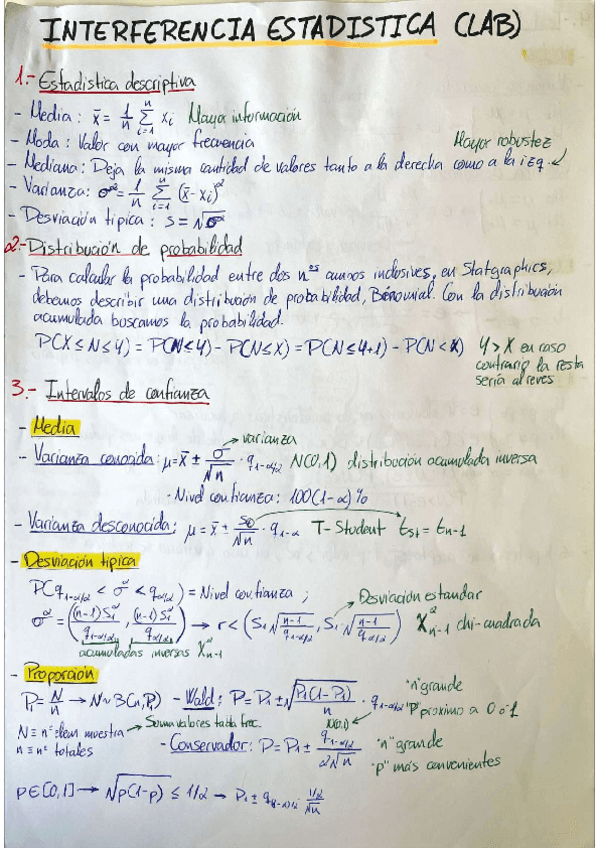 INTERFERENCIA ESTADISTICA (LAB)
1.- Estadistica descriptiva
- Media: x̄ = 1/n Σ(i=1→n) xi Mayor información
- Moda: Valor con mayor frecuencia Mayor robustez
- Mediana: Deja la misma cantidad de valores tanto a la derecha como a la izq. ↙
- Varianza: σ² = 1/n Σ(i=1→n) (x̄ - xi)²
- Desviación tipica: s = √σ²
2.- Distribución de probabilidad
- Para calcular la probabilidad entre dos nºs ambos inclusives, en Statgraphics,
debemos describir una distribución de probabilidad, Binomial. Con la distribución
acumulada buscamos la probabilidad.
P(X ≤ N ≤ Y) = P(N ≤ Y) - P(N ≤ X) = P(N ≤ Y+1) - P(N < X) Y > X en caso
contrario la resta
sería al reves
3.- Intervalos de confianza
- Media
→ varianza
- Varianza conocida: μ = x̄ ± σ/√n · q1-α/2 N(0,1) distribución acumulada inversa
· Nivel confianza: 100(1-α)%
- Varianza desconocida: μ = x̄ ± /√n · q1-α T-Student = tn-1
- Desviación tipica
P(q1-α/2 < σ² < qα/2) = Nivel confianza ;
→ Desviación estandar
σ² = ((n-1)S1²/q1-α/2 , (n-1)S1²/qα/2) → r < (S1 √(n-1/q1-α/2), S1·√(n-1/qα/2)) X²n-1 chi-cuadrada
acumuladas inversas X²n-1
- Proporción
P1 = N/n → N~B(n,P) - Wald: P = P1 ± √(P1(1-P1)/n) · q1-α/2 "n" grande
"P" proximo a 0 o 1
N(0,1)
N ≡ nº elem muestra → Suma valores tabla frec.
n ≡ nº totales
- Conservador: P = P1 ± q1-α/2 / 2√n "n" grande
"p" más convenientes
p∈[0,1] → √p(1-p) ≤ 1/2 → P1 ± q1-α/2 · 1/2/√n